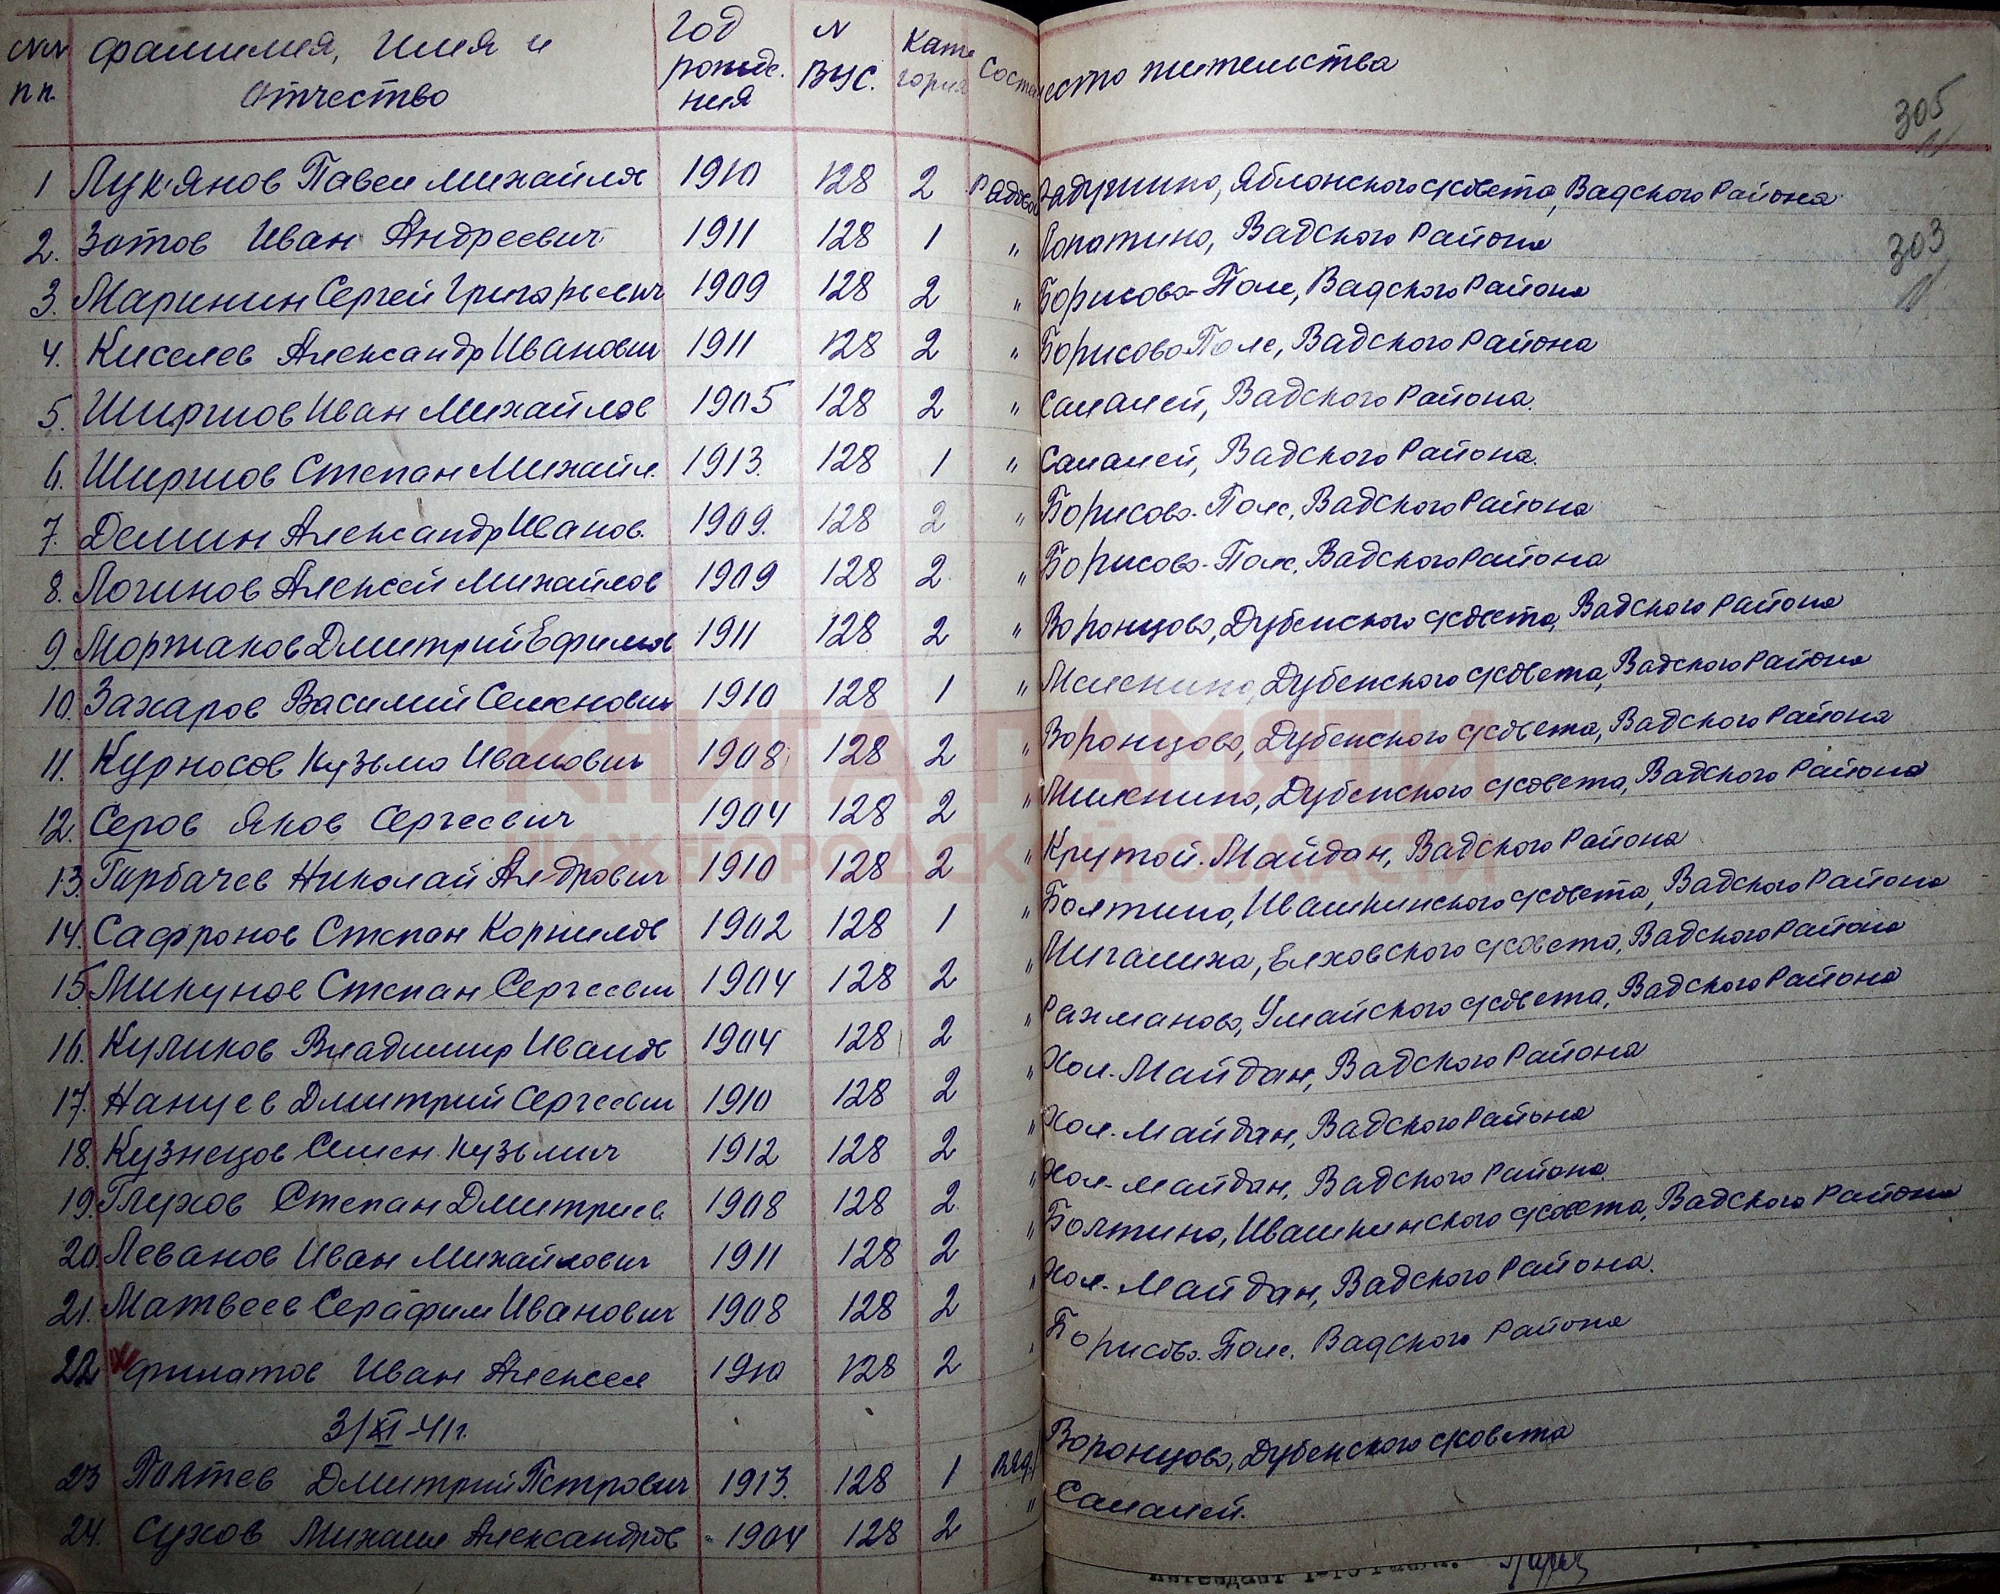 NN пп. Фамилия, Имя и Отчество Год рожде. ния N ВУС. Кате гория Соста ество жительства
305
303
1 Лук'янов Павел Михайлов 1910 128 2 Рядовой Яблонского с/совета, Вадского Района
2. Зотов Иван Андреевич 1911 128 1 " Лопатино, Вадского Района
3. Маринин Сергей Григорьевич 1909 128 2 " Борисово-Поле, Вадского Района
4. Киселев Александр Иванович 1911 128 2 " Борисово Поле, Вадского Района
5. Ширшов Иван Михайлов 1905 128 2 " Салалей, Вадского Района.
6. Ширшов Степан Михайл. 1913. 128 1 " Салалей, Вадского Района.
7. Демин Александр Иванов. 1909. 128 2 " Борисово-Поле, Вадского Района
8. Логинов Алексей Михайлов 1909 128 2 " Борисово-Поле, Вадского Района
9. Моржаков Дмитрий Ефимов 1911 128 2 " Воронцово, Дубенского с/совета, Вадского Района
10. Захаров Василий Семенович 1910 128 1 " Дубенского с/совета, Вадского Района
11. Курносов Кузьма Иванович 1908 128 2 " Воронцово, Дубенского с/совета, Вадского Района
12. Серов Яков Сергеевич 1904 128 2 " Дубенского с/совета, Вадского Района
13. Горбачев Николай Алдрович 1910 128 2 " Крутой-Майдан, Вадского Района
14. Сафронов Степан Корнилов 1902 128 1 " Болтино, Ивашкинского с/совета, Вадского Района
15. Микунов Степан Сергеевич 1904 128 2 " Мигалиха, Елховского с/совета, Вадского Района
16. Куликов Владимир Иванов 1904 128 2 " Рахманово, Умайского с/совета, Вадского Района
17. Нануев Дмитрий Сергеевич 1910 128 2 " Хол. Майдан, Вадского Района
18. Кузнецов Семен Кузьмич 1912 128 2 " Хол. Майдан, Вадского Района
19. Глухов Степан Дмитриев. 1908 128 2 " Хол. Майдан, Вадского Района.
20. Леванов Иван Михайлович 1911 128 2 " Болтино, Ивашкинского с/совета, Вадского Района
21. Матвеев Серафим Иванович 1908 128 2 " Хол. Майдан, Вадского Района.
22 Филатов Иван Алексее 1910 128 2 " Борисово-Поле, Вадского Района
3/XI-41г.
23 Полтев Дмитрий Петрович 1913. 128 1 Ряд. Воронцово, Дубенского с/совета
24. Сухов Михаил Александров 1904 128 2 " Салалей.
КНИГА ПАМЯТИ
НИЖЕГОРОДСКОЙ ОБЛАСТИ